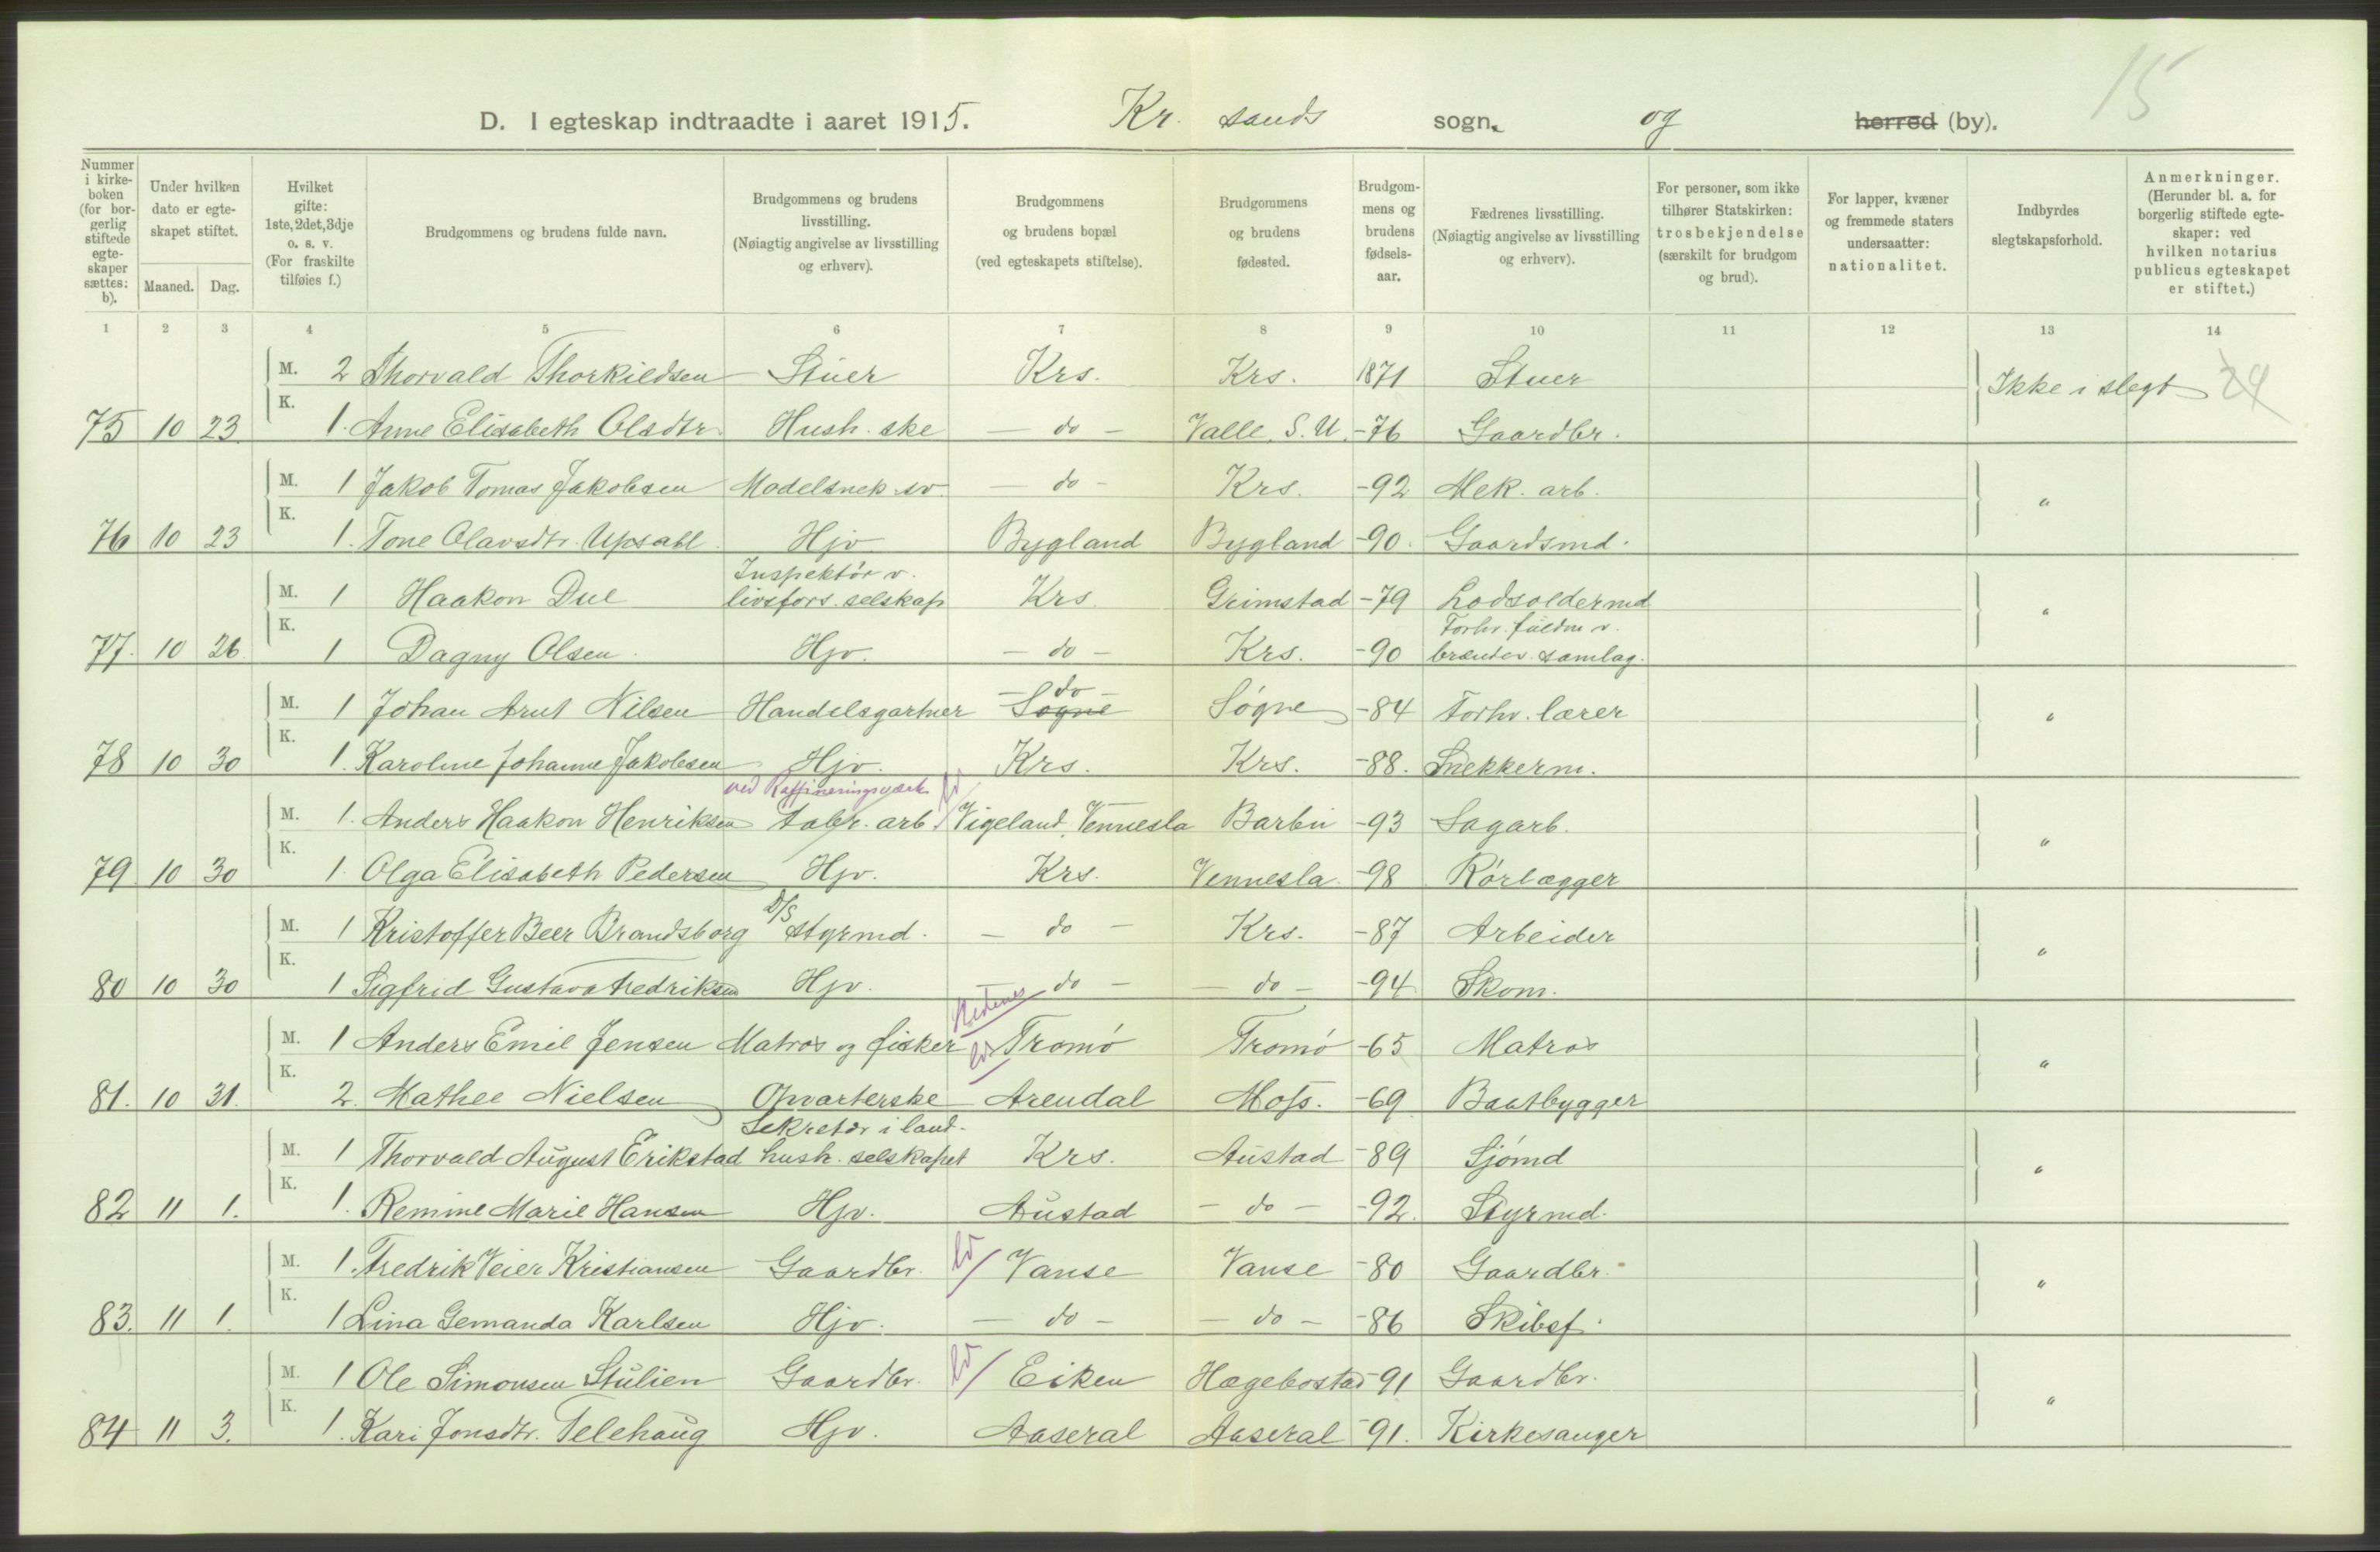 15
D. I egteskap indtraadte i aaret 1915. Kr. sands sogn. og herred (by).
Nummer i kirkeboken (for borgerlig stiftede egteskaper sættes: b).
Under hvilken dato er egteskapet stiftet.
Maaned. Dag.
Hvilket gifte: 1ste, 2det, 3dje o. s. v. (For fraskilte tilføies f.)
Brudgommens og brudens fulde navn.
Brudgommens og brudens livsstilling. (Nøiagtig angivelse av livsstilling og erhverv).
Brudgommens og brudens bopæl (ved egteskapets stiftelse).
Brudgommens og brudens fødested.
Brudgommens og brudens fødselsaar.
Fædrenes livsstilling. (Nøiagtig angivelse av livsstilling og erhverv).
For personer, som ikke tilhører Statskirken: trosbekjendelse (særskilt for brudgom og brud).
For lapper, kvæner og fremmede staters undersaatter: nationalitet.
Indbyrdes slegtskapsforhold.
Anmerkninger. (Herunder bl. a. for borgerlig stiftede egteskaper: ved hvilken notarius publicus egteskapet er stiftet.)
1 2 3 4 5 6 7 8 9 10 11 12 13 14
M. 2 Thorvald Thorkildsen Stuer Krs. Krs. 1871 Stuer Ikke i slegt 24
75 10 23. K. 1. Anne Elisabeth Olsdtr. Hush.ske - do - Valle, S. U. -76 Gaardbr.
M. 1 Jakob Tomas Jakobsen Modelsnek.sv. - do - Krs. -92 Mek. arb. "
76 10 23 K. 1. Tone Olavsdtr. Upsahl Hjv. Bygland Bygland -90. Gaardsmd.
Inspektør v.
M. 1 Haakon Due livsfors. selskap Krs. Grimstad -79 Lodsoldermd "
Forhv. fuldm v.
77. 10 26. K. 1 Dagny Olsen. Hjv. - do - Krs. -90 brændev. samlag.
- do -
M. 1 Johan Arnt Nilsen Handelsgartner Søgne Søgne -84 Forhv. lærer "
78 10 30 K. 1. Karoline Johanne Jakobsen Hjv. Krs. Krs. -88. Snekkerm.
ved Raffineringsværk ld
M. 1. Anders Haakon Henriksen Fabr. arb. / Vigeland, Vennesla Barbu -93 Sagarb. "
79 10 30 K. 1. Olga Elisabeth Pedersen Hjv. Krs. Vennesla. -98 Rørlægger
D/S
M. 1 Kristoffer Beer Brandsborg styrmd. - do - Krs. -87 Arbeider "
80 10 30 K. 1 Sigfrid Gustava Fredriksen Hjv. - do - - do - -94 Skom.
Nedenes
M. 1 Anders Emil Jensen Matros og fisker ld Tromø Tromø -65 Matros "
81. 10 31. K. 2. Mathee Nielsen Opvarterske Arendal Moss. -69 Baatbygger
Sekretær i land-
M. 1 Thorvald August Erikstad hush. selskapet Krs. Austad -89 Sjømd "
82 11 1. K. 1. Remine Marie Hansen Hjv. Austad - do - -92. Styrmd.
M. 1. Fredrik Veier Kristiansen Gaardbr. ld / Vanse Vanse -80 Gaardbr. "
83. 11 1. K. 1 Lina Gemanda Karlsen Hjv. - do - - do - -86 Skibsf.
M. 1 Ole Simonsen Stulien Gaardbr. ld / Eiken Hægebostad -91 Gaardbr. "
84 11 3. K. 1. Kari Jonsdtr. Telehaug Hjv. Aaseral Aaseral -91. Kirkesanger